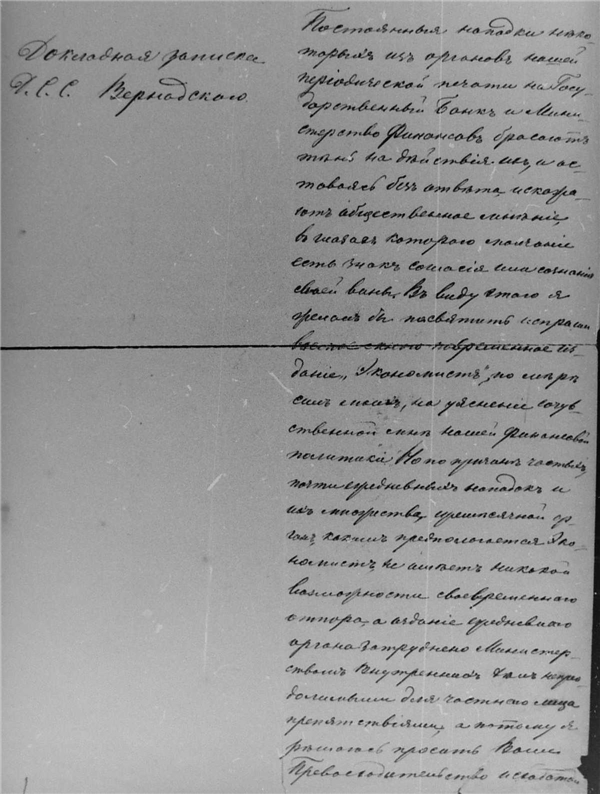 Докладная записка
Д. С. С. Вернадскаго.
Постоянныя нападки нѣко-
торыхъ изъ органовъ нашей
періодической печати на Госу-
дарственный Банкъ и Мини-
стерство Финансовъ бросаютъ
тѣнь на дѣйствія ихъ, и ос-
таваясь безъ отвѣта, искажа-
ютъ общественное мнѣніе,
въ глазахъ котораго молчаніе
есть знакъ согласія или сознанія
своей вины. Въ виду этого я
желалъ бы посвятить
повременное из-
даніе, "Экономистъ", по мѣрѣ
силъ моихъ, на уясненіе сочув-
ственной мнѣ нашей финансовой
политики. Но по причинѣ частыхъ,
почти ежедневныхъ нападокъ и
ихъ множества, ежемѣсячной ор-
ганъ, какимъ предполагается Эко-
номистъ, не имѣетъ никакой
возможности своевременнаго
отпора, а изданіе ежедневнаго
органа затруднено Министер-
ствомъ Внутреннихъ Дѣлъ непрео-
долимыми для частнаго лица
препятствіями, а потому я
рѣшаюсь просить Ваше
Превосходительство